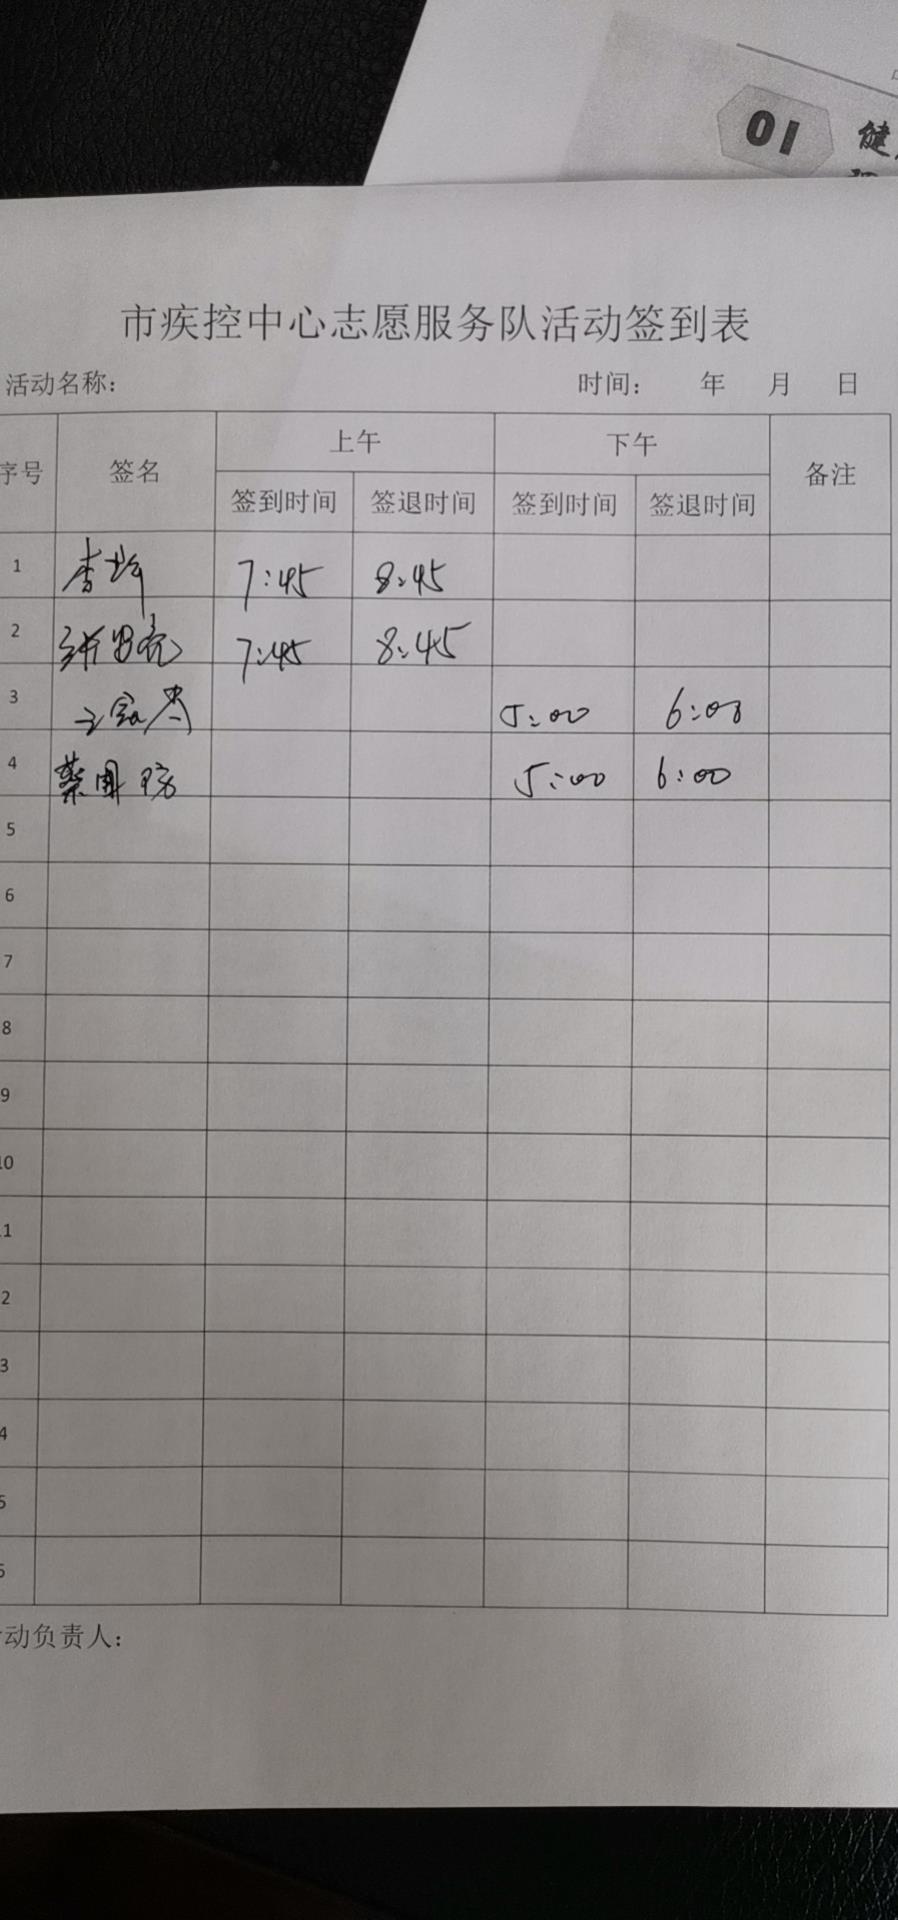 01 健
市疾控中心志愿服务队活动签到表
活动名称： 时间： 年 月 日
序号 签名 上午 下午 备注
签到时间 签退时间 签到时间 签退时间
1 李 7:45 8:45
2 7:45 8:45
3 5:00 6:00
4 蔡国 5:00 6:00
5
6
7
8
9
10
11
2
3
4
5
动负责人：